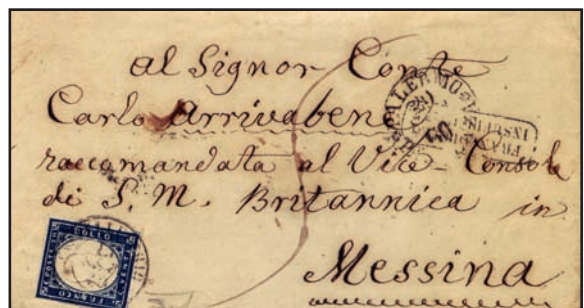 al Signor Conte
Carlo Arrivabene
raccomandata al Vice-Console
di S. M. Britannica in
Messina
PALERMO
FRANCO
BOLLO